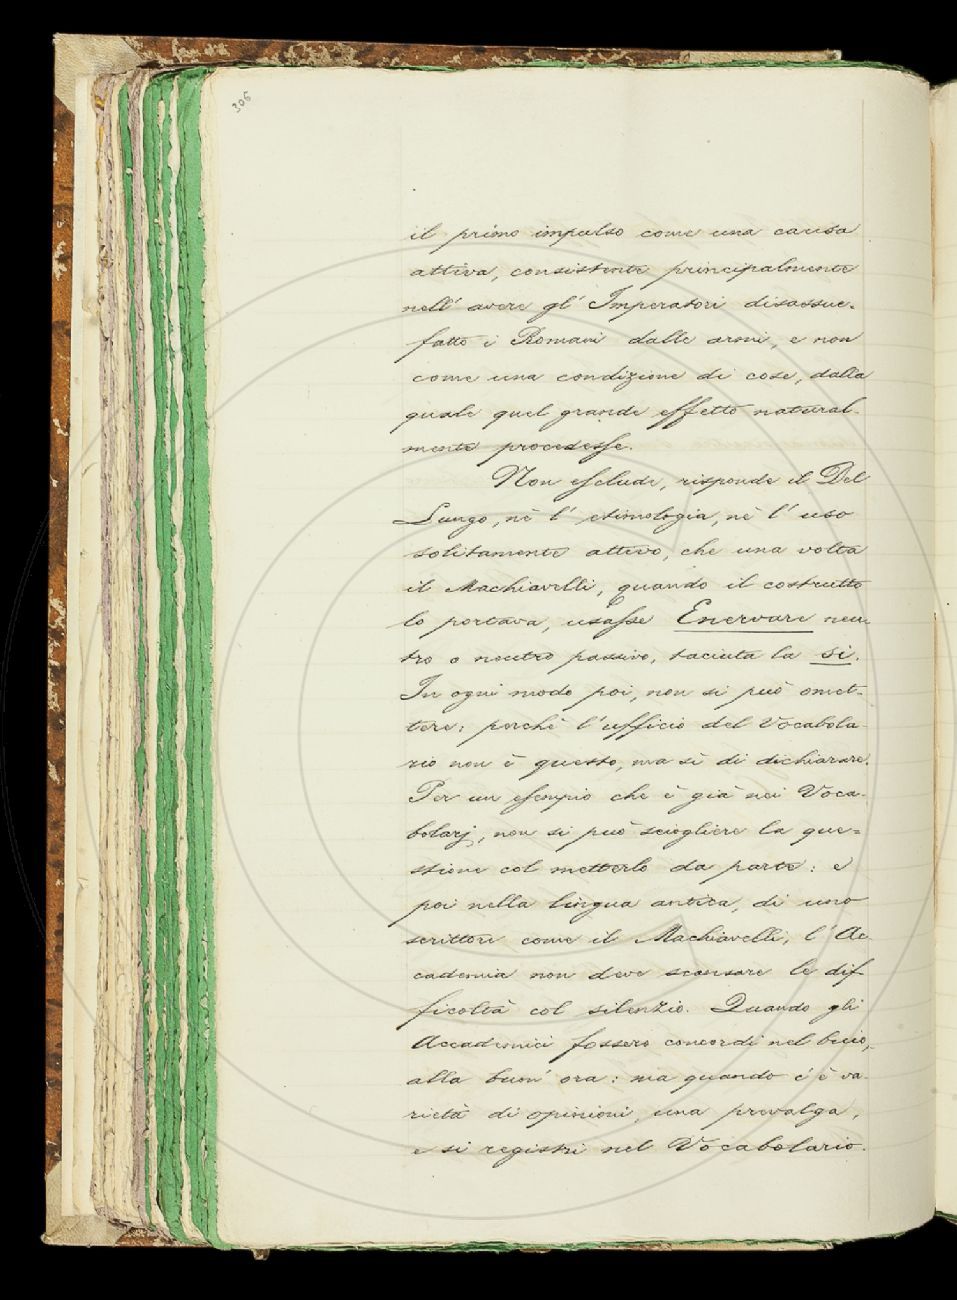 306
il primo impulso come una causa
attiva, consistente principalmente
nell' avere gl' Imperatori disassue-
fatto i Romani dalle armi, e non
come una condizione di cose, dalla
quale quel grande effetto natural-
mente procedesse.
Non esclude, risponde il Del
Lungo, nè l' etimologia, nè l' uso
solitamente attivo, che una volta
il Machiavelli, quando il costrutto
lo portava, usasse Enervare neu-
tro o neutro passivo, taciuta la si.
In ogni modo poi, non si può omet-
tere: perchè l'ufficio del Vocabola-
rio non è questo, ma sì di dichiarare.
Per un esempio che è già nei Voca-
bolarj, non si può sciogliere la que=
stione col metterlo da parte: e
poi nella lingua antica, di uno
scrittore come il Machiavelli, l' Ac-
cademia non deve scansare le dif
ficoltà col silenzio. Quando gli
Accademici fossero concordi nel
alla buon' ora: ma quando c' è va-
rietà di opinioni, una prevalga,
e si registri nel Vocabolario.